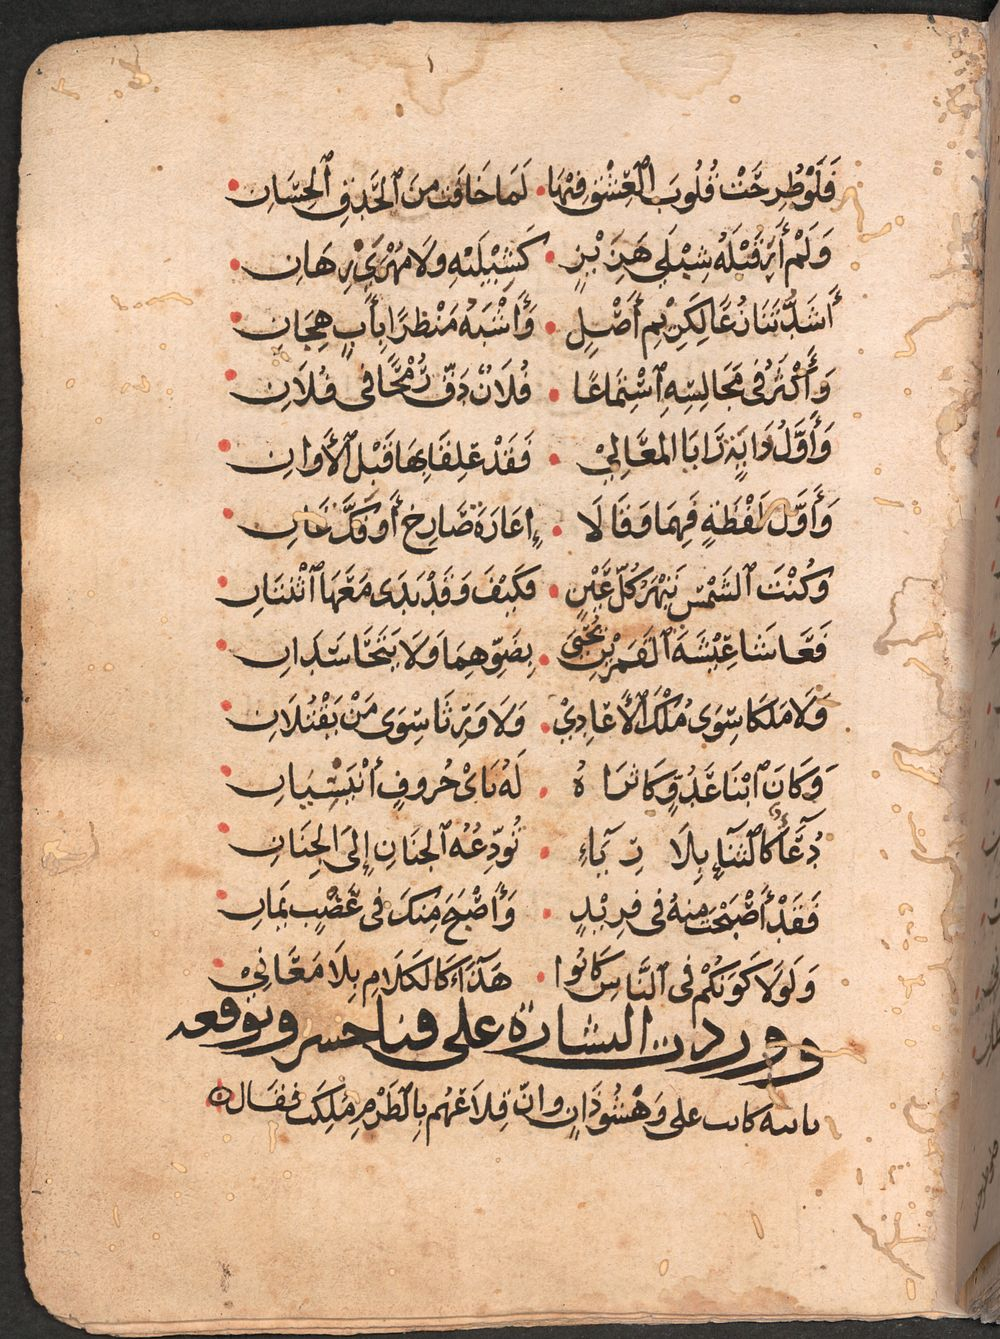 فَلَوْ طُرِحَتْ قُلُوبُ الْعِشْقِ فِيْهَا • لَمَا خَافَتْ مِنَ الْحَدَقِ الْحِسَانِ
وَلَمْ أَرَ قَبْلَهُ شِبْلَيْ هِزَبْرٍ • كَشِبْلَيْهِ وَلَا مُهْرَيْ رِهَانِ
أَشَدَّ تَنَازُعًا لِكَرِيْمِ أَصْلٍ • وَأَشْبَهَ مَنْظَرًا بِأَبٍ هِجَانِ
وَأَكْثَرُ فِي مَجَالِسِهِ اسْتِمَاعًا • فُلَانٌ دَقَّ رُمْحًا فِي فُلَانِ
وَأَوَّلُ دَايَةٍ رَأَيَا الْمَعَالِيْ • فَقَدْ عَلِقَا بِهَا قَبْلَ الْأَوَانِ
وَأَوَّلُ لَفْظَةٍ فَهِمَا وَقَالَا • إِغَارَةُ صَارِخٍ أَو فَكُّ عَانِ
وَكُنْتَ الشَّمْسَ تَبْهَرُ كُلَّ عَيْنٍ • فَكَيْفَ وَقَدْ بَدَى مَعَهَا اثْنَتَانِ
فَعَاشَا عِيْشَةَ الْقَمَرَيْنِ يُحْيَى • بِضَوّهِمَا وَلَا يَتَحَاسَدَانِ
وَلَا مَلَكَا سِوَى مُلْكِ الْأَعَادِيْ • وَلَا وَرِثَا سِوَى مَنْ يَقْتُلَانِ
وَكَانَ ابْنَا عَدُوٍّ كَاثَرَاهُ • لَهُ يَائَيْ حُرُوفِ أُنَيْسِيَانِ
دُعَآءٌ كَالثَّنَآءِ بِلَا رِيَآءِ • تُوَدِّعُهُ الْجَنَانِ إِلَى الْجَنَانِ
فَقَدْ أَصْبَحْتَ مِنْهُ فِي فِرِنْدٍ • وَأَصْبَحَ مِنْكَ فِي عَضْبٍ يَمَانِ
وَلَوْلَا كَوْنُكُمْ فِي النَّاسِ كَانُوا • هُذَآءً كَالْكَلَامِ بِلَا مَعَانِيْ
ووردت البشارة على فناخسرو بوقعه
ثانيه كانت على وَهْشُوذَانِ وانّ قلاعهم بالطَرْمِ مُلِكَت فقال ه